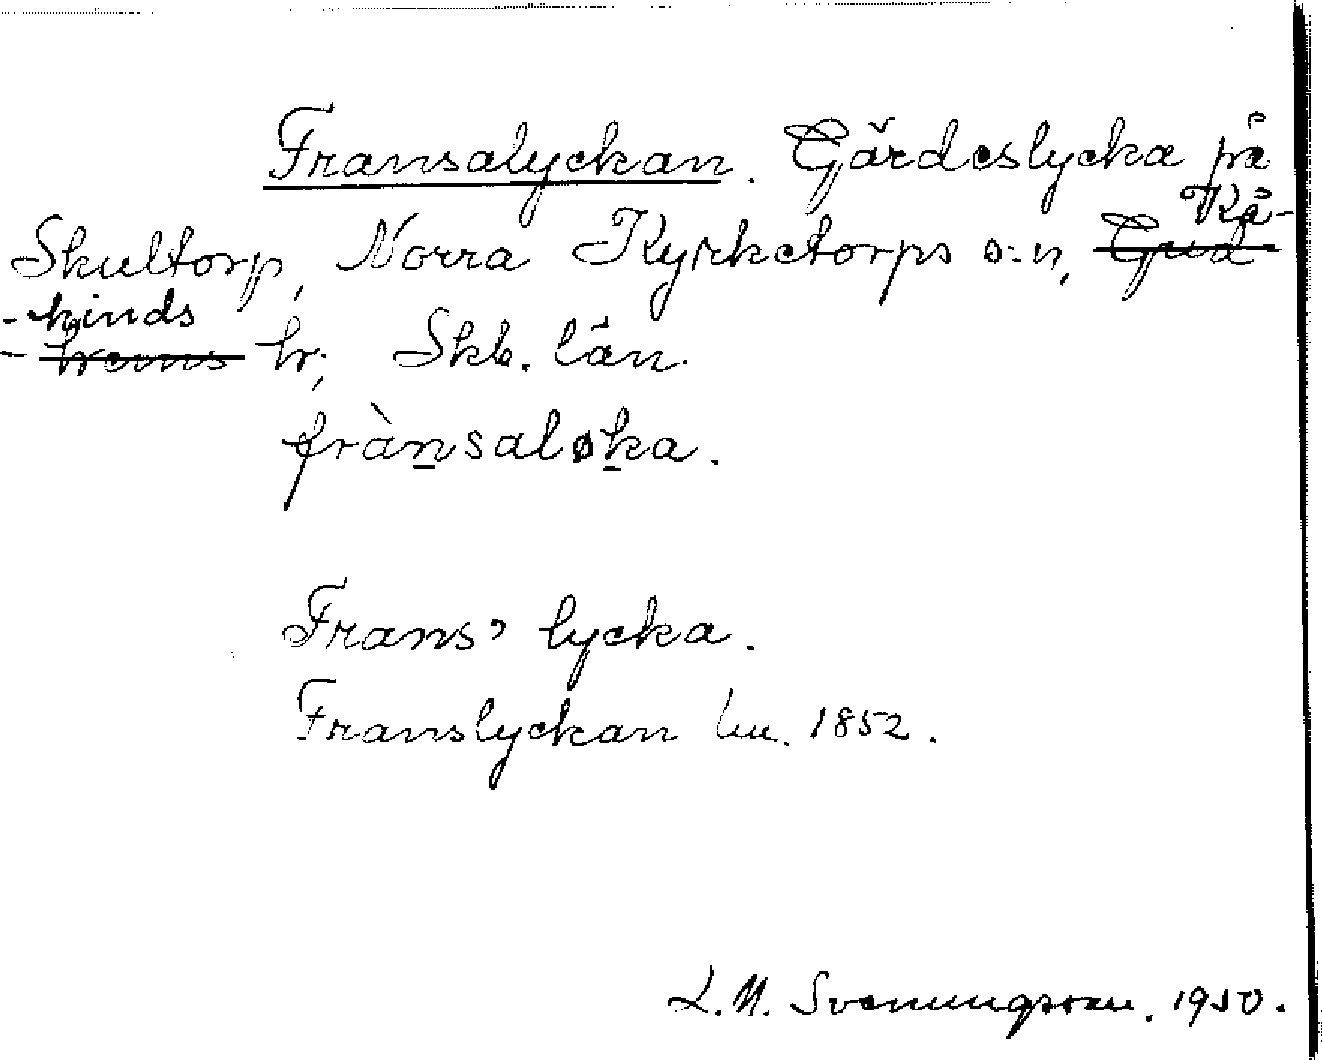 Fransalyckan. Gärdeslycka på
Skultorp, Norra Kyrketorps s:n, Gud Kå-
-kinds
-hems hr, Skb. län.
frànsaløka.
Frans' lycka.
Franslyckan lm. 1852.
L.M. Svenungsson. 1950.